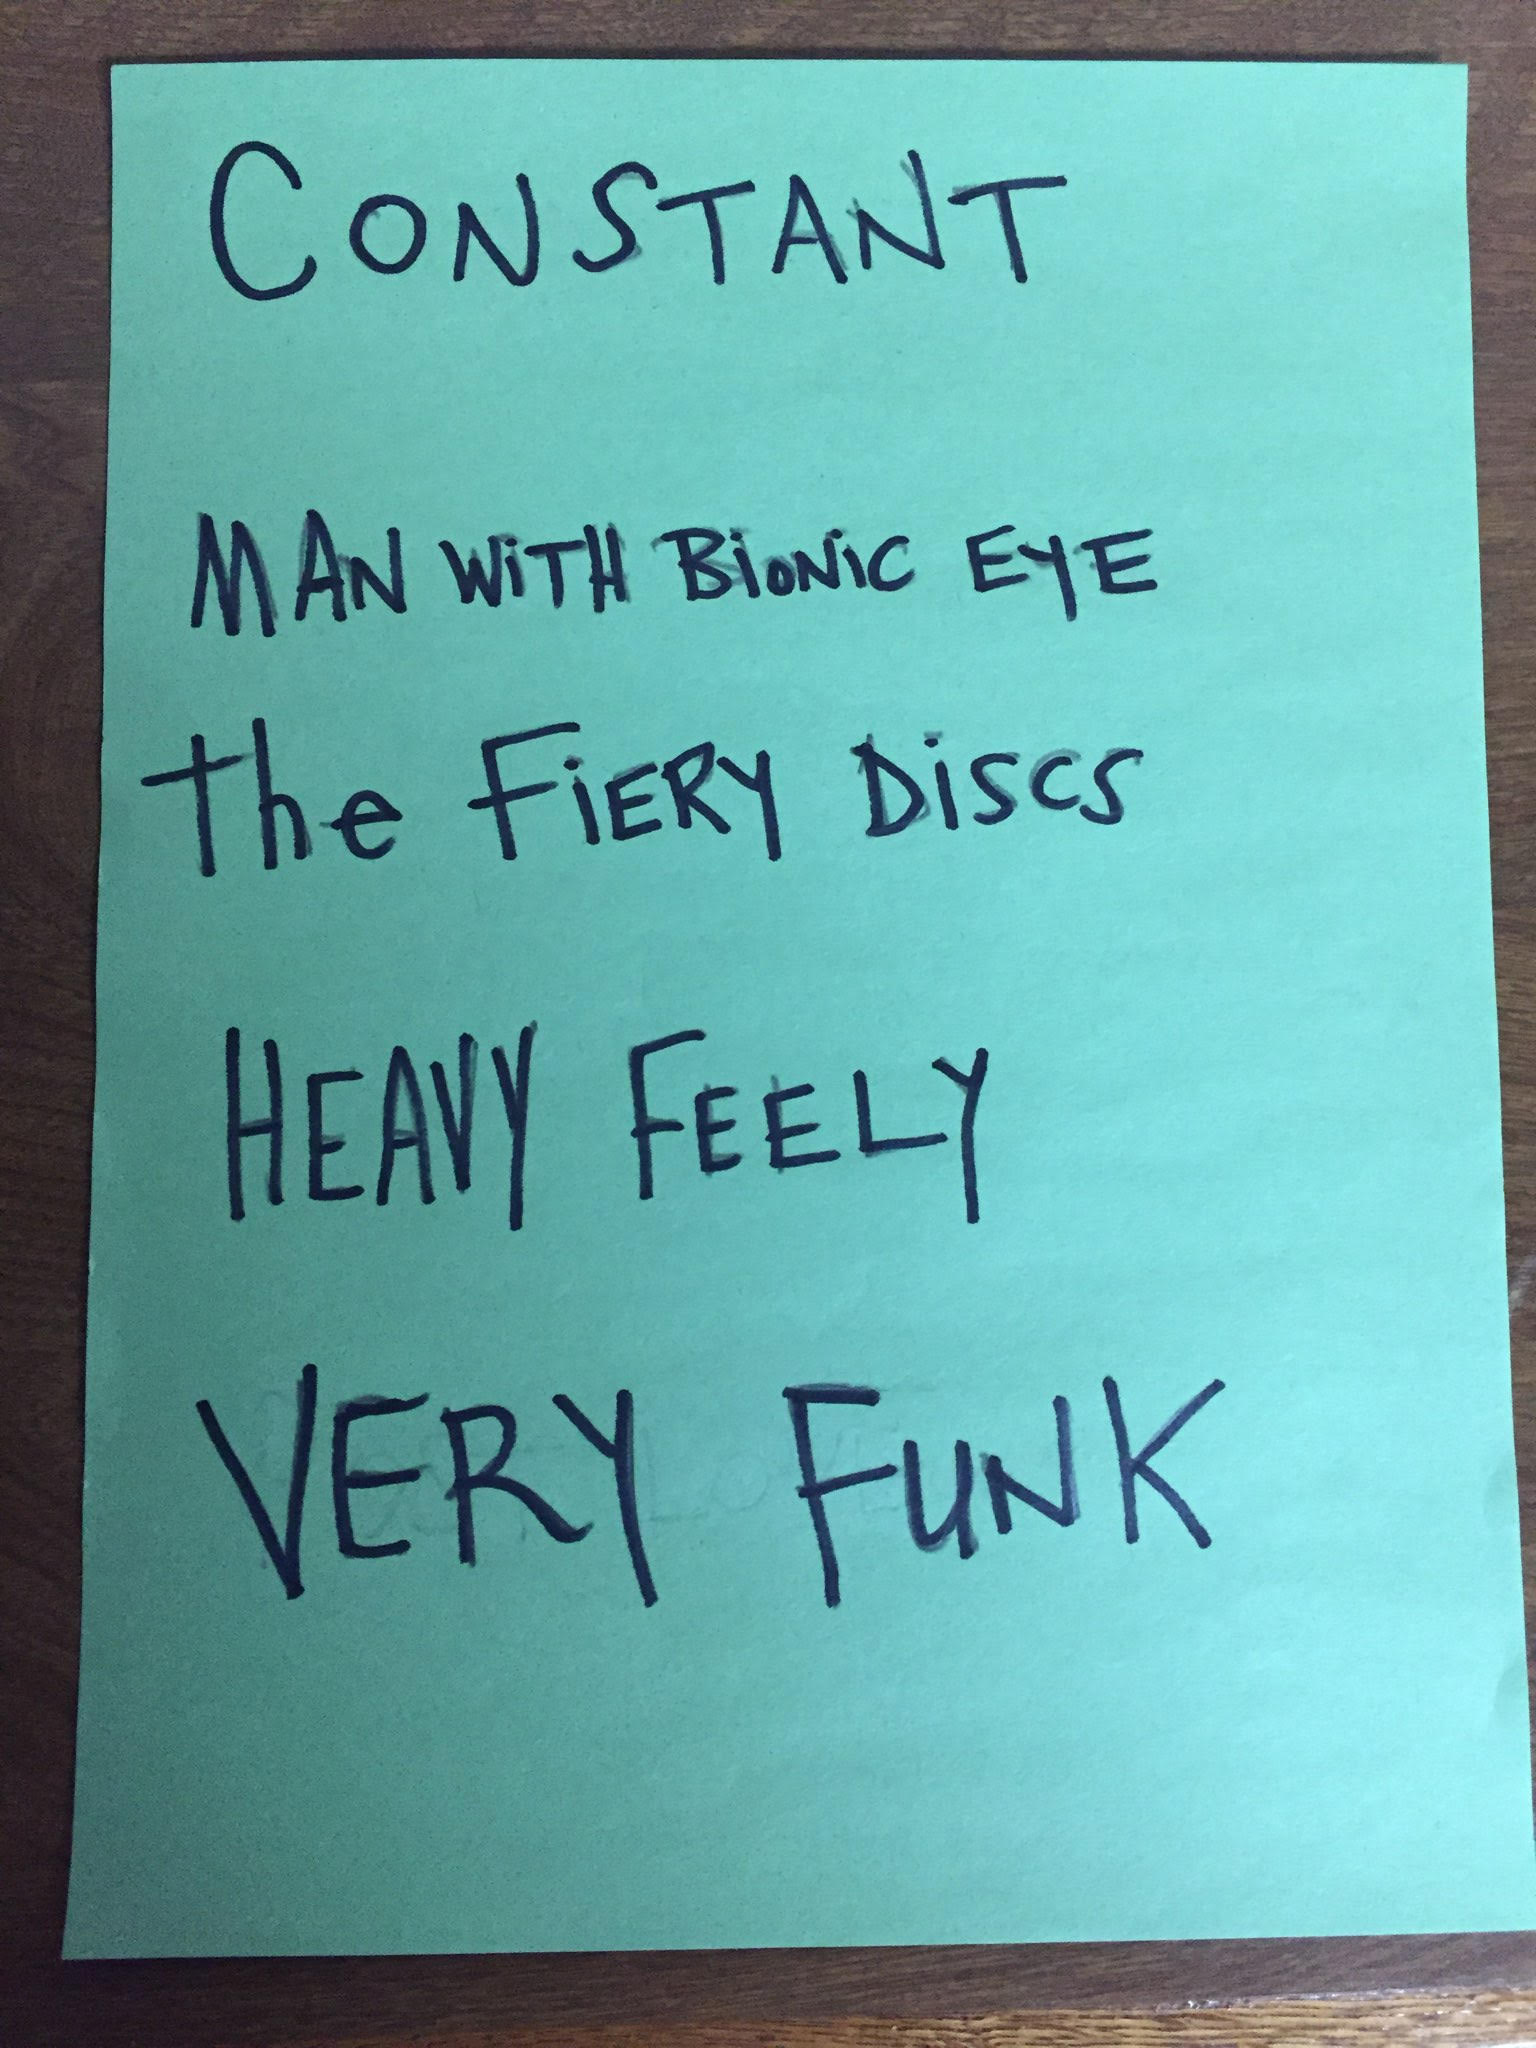 CONSTANT
MAN WiTH BioNiC EYE
the FiERY DiSCS
HEAVY FEELY
VERY FUNK